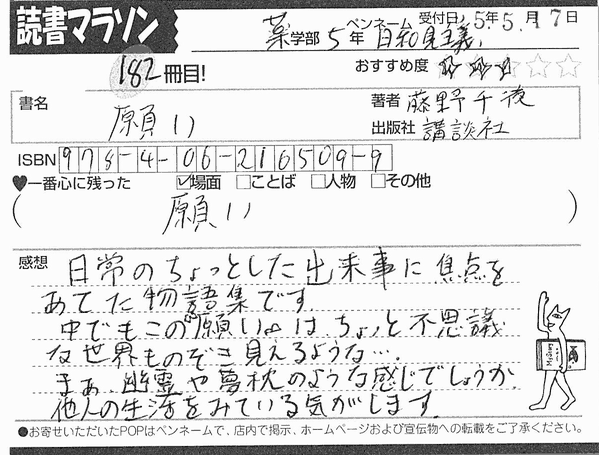 読書マラソン
薬学部 5年 ペンネーム 日和見主義 受付日 '15年 5月 17日
182冊目!
おすすめ度 ★★★☆☆
書名 願い
著者 藤野千夜
出版社 講談社
ISBN 978-4-06-216509-9
♥一番心に残った ☑場面 □ことば □人物 □その他
( 願い )
感想 日常のちょっとした出来事に焦点を
あてた物語集です
中でもこの"願い"は、ちょっと不思議
な世界ものぞき見えるような….
まぁ、幽霊や夢枕のような感じでしょうか.
他人の生活をみている気がします.
●お寄せいただいたPOPはペンネームで、店内で掲示、ホームページおよび宣伝物への転載をご了承ください。